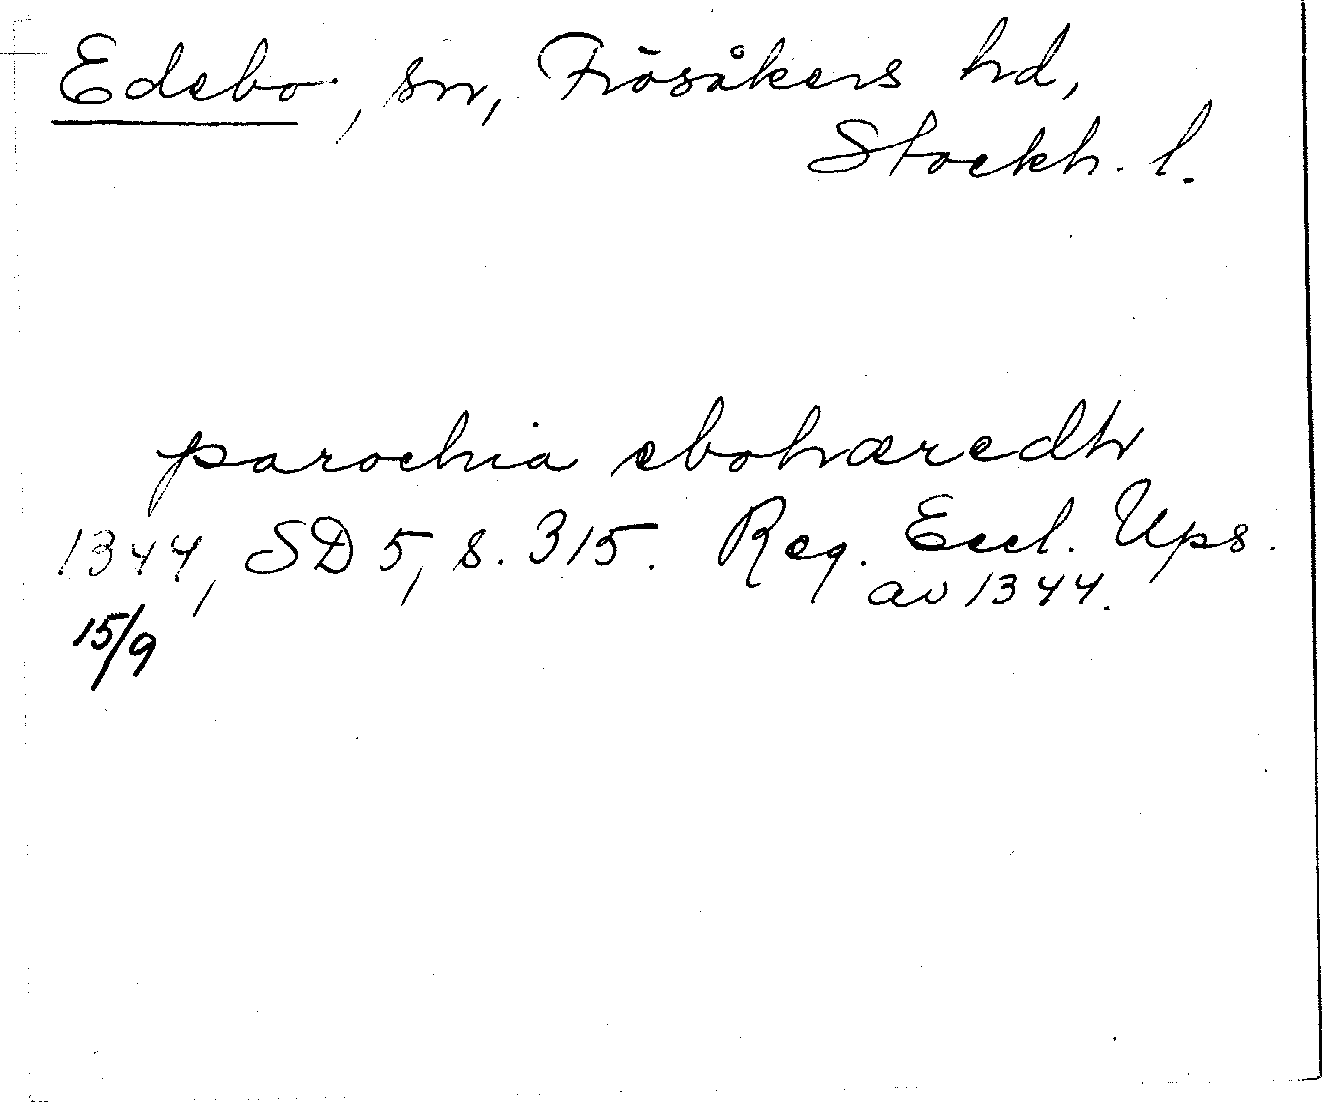 Edebo, sn, Frösåkers hd,
Stockh. l.
parochia ebohæredh
1344, SD 5, s. 315. Reg. Eccl. Ups.
av 1344.
15/9